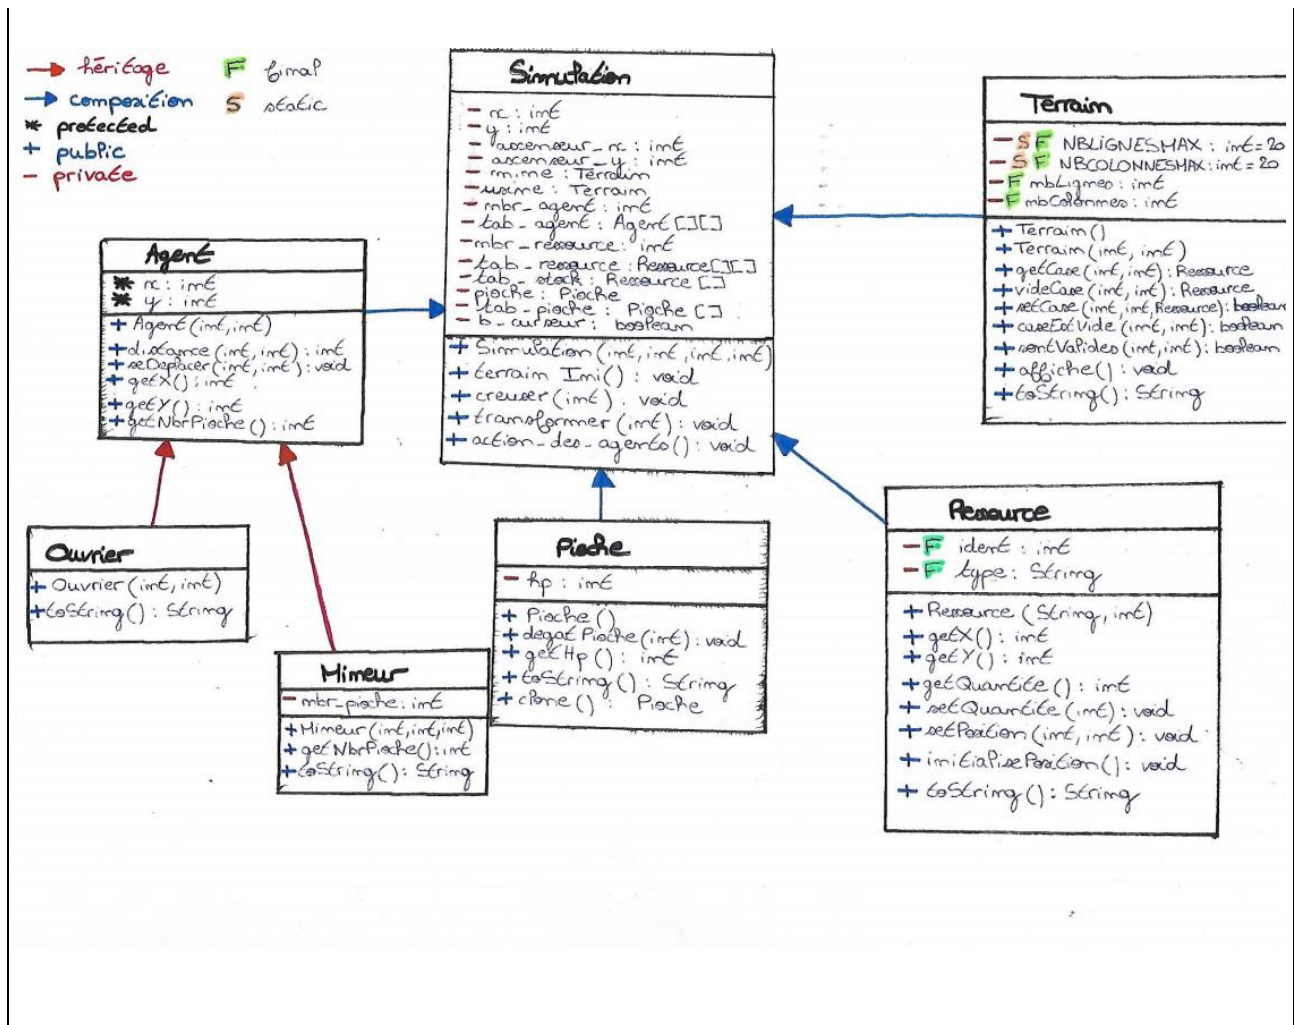 héritage
composition
* protected
+ public
- private
F final
S static
Simulation
- x : int
- y : int
- ascenseur_x : int
- ascenseur_y : int
- mine : Terrain
- usine : Terrain
- nbr_agent : int
- tab_agent : Agent [][]
- nbr_ressource : int
- tab_ressource : Ressource[][]
- tab_stock : Ressource []
- pioche : Pioche
- tab_pioche : Pioche []
- b_curseur : boolean
+ Simulation (int, int, int, int)
+ terrain Ini() : void
+ creuser (int) . void
+ transformer (int) : void
+ action_des_agents () : void
Terrain
- S F NBLIGNESMAX : int = 20
- S F NBCOLONNESMAX : int = 20
- F nbLignes : int
- F nbColonnes : int
+ Terrain ()
+ Terrain (int, int)
+ getCase (int, int) : Ressource
+ videCase (int, int) : Ressource
+ setCase (int, int, Ressource) : boolean
+ caseEstVide (int, int) : boolean
+ sontValides (int, int) : boolean
+ affiche () : void
+ toString () : String
Agent
* x : int
* y : int
+ Agent (int, int)
+ distance (int, int) : int
+ seDeplacer (int, int) : void
+ getX () : int
+ getY () : int
+ getNbrPioche () : int
Ouvrier
+ Ouvrier (int, int)
+ toString () : String
Mineur
- nbr_pioche : int
+ Mineur (int, int, int)
+ getNbrPioche () : int
+ toString () : String
Pioche
- hp : int
+ Pioche ()
+ degat Pioche (int) : void
+ getHp () : int
+ toString () : String
+ clone () : Pioche
Ressource
- F ident : int
- F type : String
+ Ressource (String, int)
+ getX () : int
+ getY () : int
+ getQuantite () : int
+ setQuantite (int) : void
+ setPosition (int, int) : void
+ initialisePosition () : void
+ toString () : String